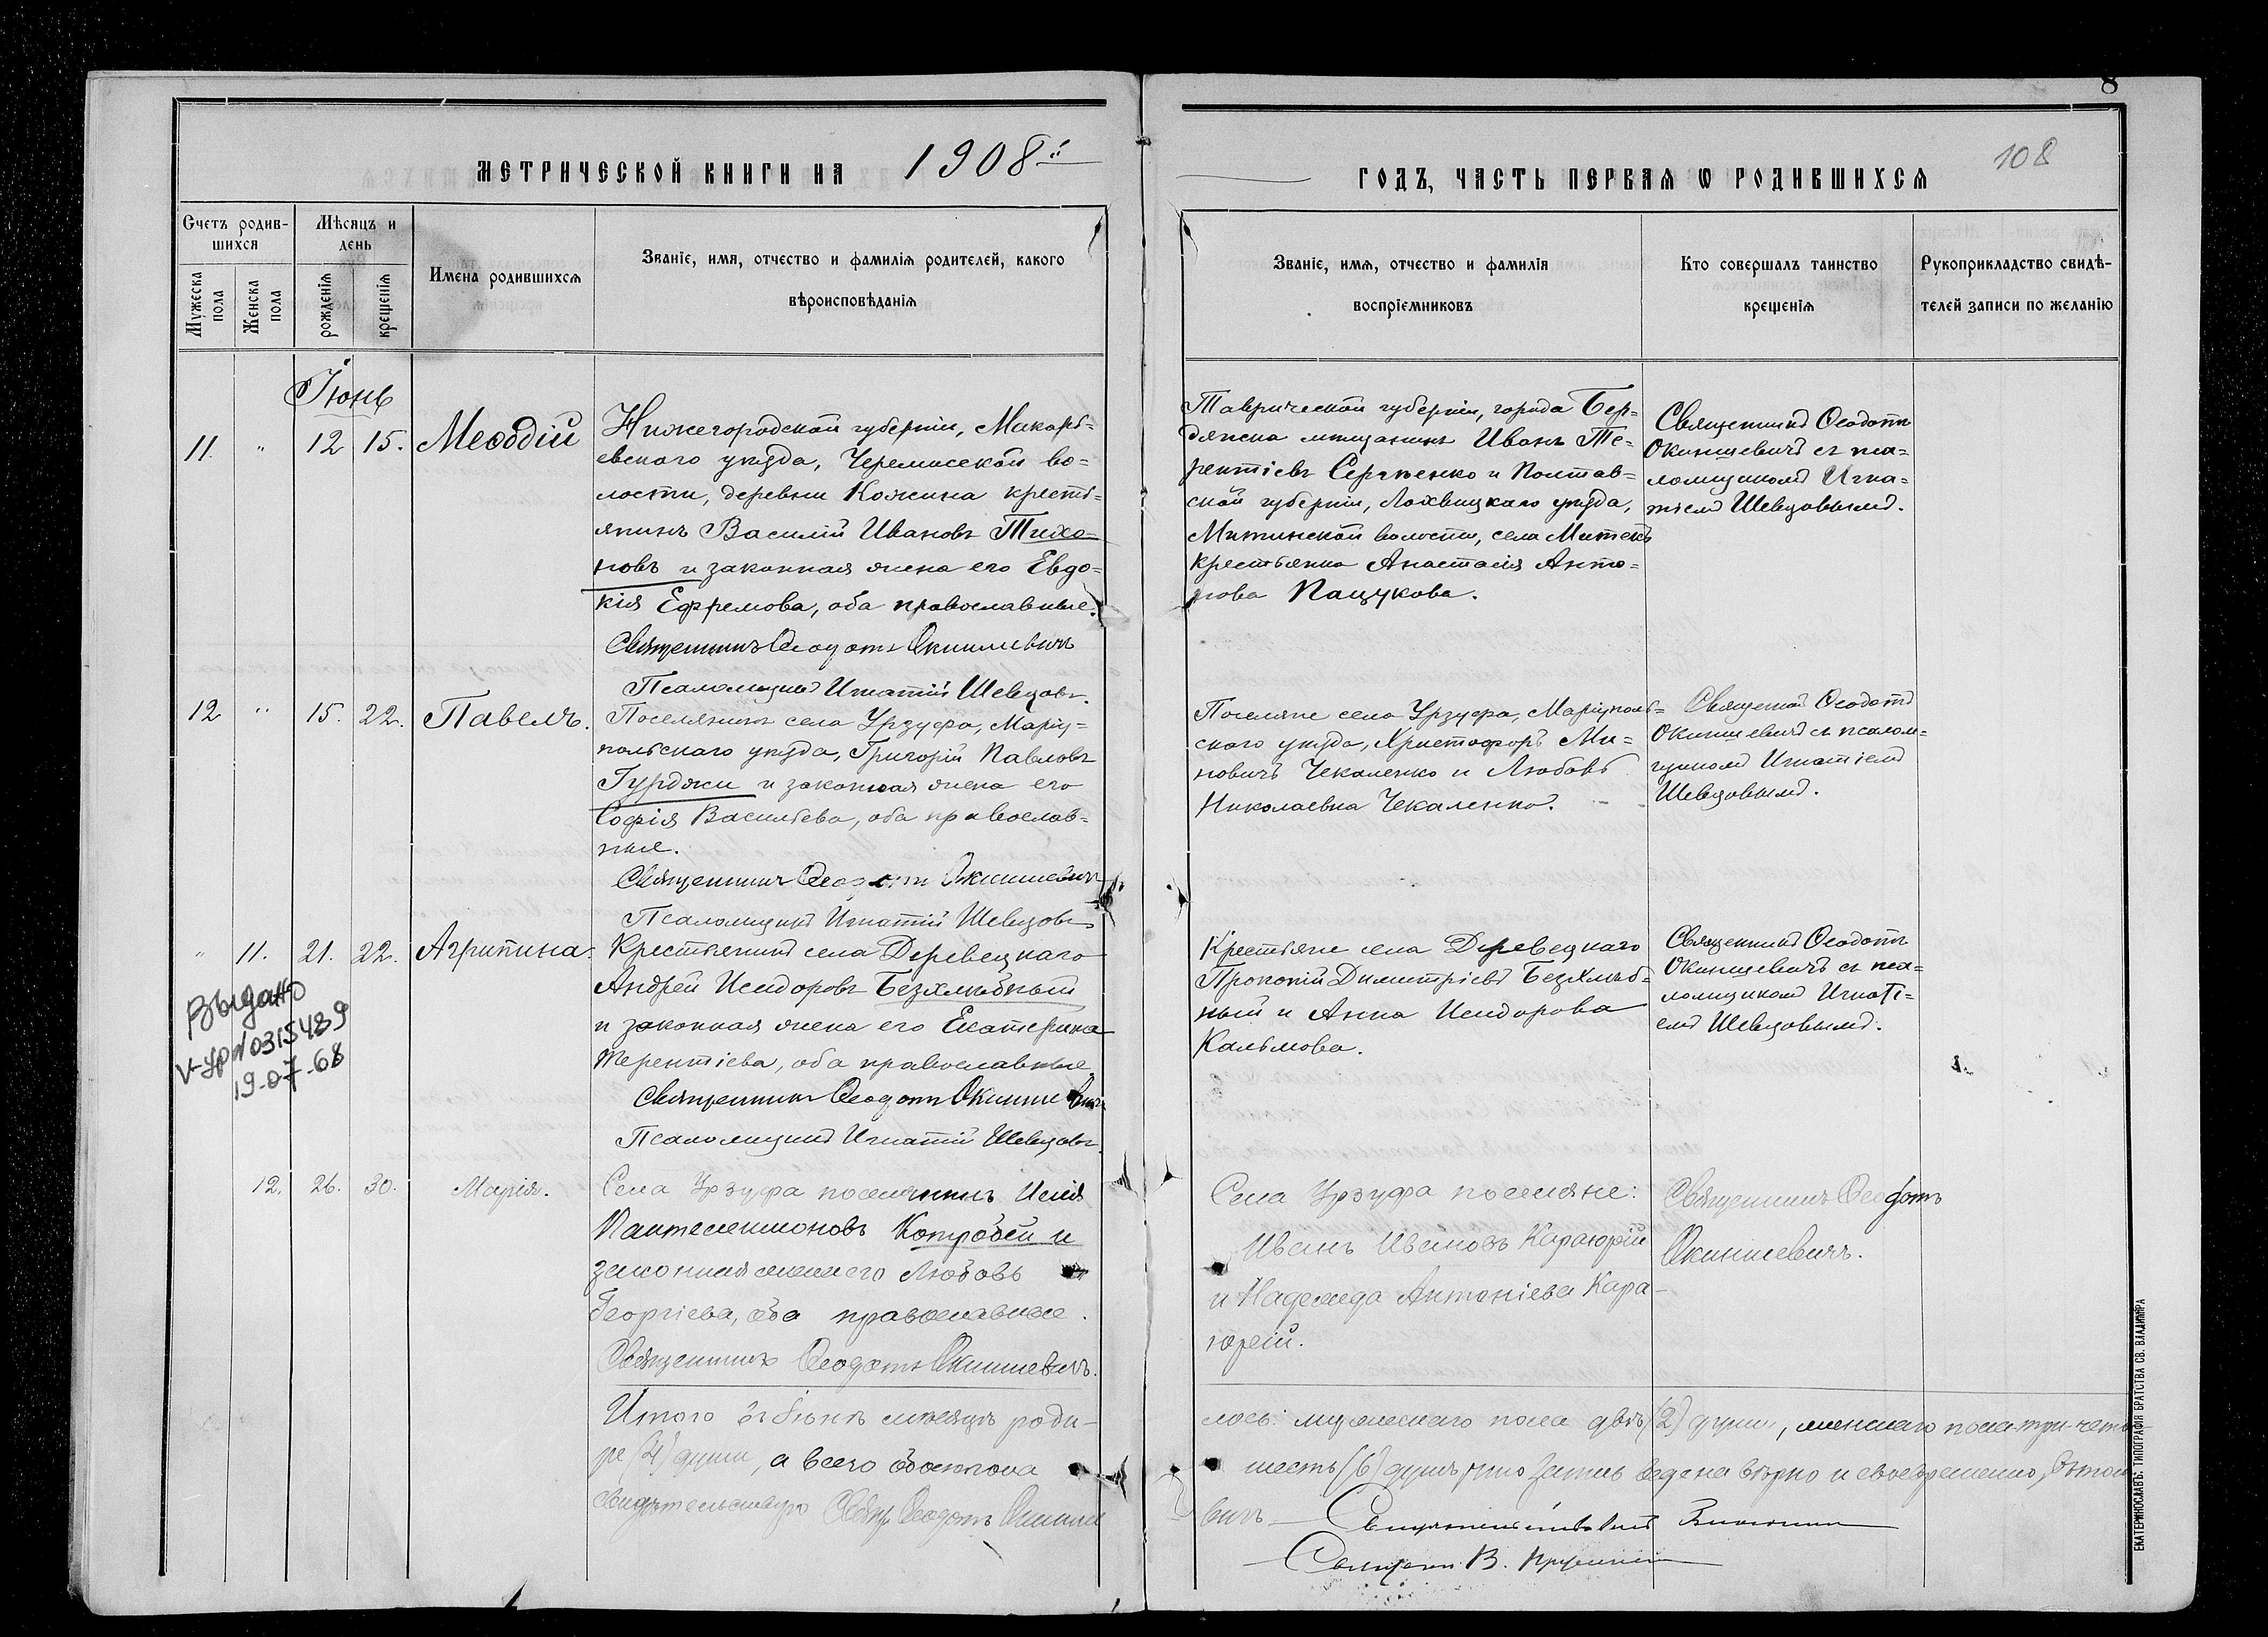 8
108
МЕТРИЧЕСКОЙ КНИГИ НА 1908й
ГОДЪ, ЧАСТЬ ПЕРВАЯ Ѡ РОДИВШИХСЯ
Счетъ родив-
шихся
Мужеска пола
Женска пола
Мѣсяцъ и
день
рожденія
крещенія
Имена родившихся
Званіе, имя, отчество и фамилія родителей, какого
вѣроисповѣданія
Званіе, имя, отчество и фамилія
воспріемниковъ
Кто совершалъ таинство
крещенія
Рукоприкладство свидѣ-
телей записи по желанію
Іюнь
11. " 12 15. Меѳодій
Нижегородской губерніи, Макарь-
евского уѣзда, Черемисской во-
лости, деревни Кожина кресть-
янинъ Василій Ивановъ Тихо-
новъ и законная жена его Евдо-
кія Ефремова, оба православные.
Священникъ Ѳеодотъ Окиншевичъ
Псаломщикъ Игнатій Шевцовъ.
Таврической губерніи, города Бер-
дянска мѣщанинъ Иванъ Те-
рентіевъ Сергѣенко и Полтав-
ской губерніи, Лохвицкаго уѣзда,
волости, села
крестьянка Анастасія Анто-
нова Пацукова.
Священникъ Ѳеодотъ
Окиншевичъ съ пса-
ломщикомъ Игна-
тіемъ Шевцовымъ.
12 " 15. 22. Павелъ.
Поселянинъ села Урзуфа, Маріу-
польскаго уѣзда, Григорій Павловъ
Гурджи и законная жена его
Софія Васильева, оба православ-
ные.
Священникъ Ѳеодотъ Окиншевичъ
Псаломщикъ Игнатій Шевцовъ
Поселяне села Урзуфа, Маріуполь-
скаго уѣзда, Христофоръ Ми-
новичъ Чекаленко и Любовь
Николаевна Чекаленко.
Священникъ Ѳеодотъ
Окиншевичъ съ псалом-
щикомъ Игнатіемъ
Шевцовымъ.
" 11. 21. 22. Агрипина.
Крестьянинъ села Деревецкаго
Андрей Исидоровъ Безхлѣбный
и законная жена его Екатерина
Терентіева, оба православные.
Священникъ Ѳеодотъ Окиншевичъ
Псаломщикъ Игнатій Шевцовъ.
Крестьяне села Деревецкаго
Прокопій Димитріевъ Безхлѣб-
ный и Анна Исидорова
Кальмова.
Священникъ Ѳеодотъ
Окиншевичъ съ пса-
ломщикомъ Игнаті-
емъ Шевцовымъ.
Выдано
V-УР №0315489
19-07-68
12. 26. 30. Марія.
Села Урзуфа поселянинъ Илія
Пантелеимоновъ Котробей и
законная жена его Любовь
Георгіева, оба православные.
Священникъ Ѳеодотъ Окиншевичъ.
Села Урзуфа поселяне:
Иванъ Ивановъ Караюрій
и Надежда Антоніева Кара-
юрій.
Священникъ Ѳеодотъ
Окиншевичъ.
Итого въ Іюнѣ мѣсяцѣ роди-
лось: мужескаго пола двѣ (2) души, женскаго пола три четы-
ре (4) души, а всего обоего пола
шесть (6) душъ, что запись ведена вѣрно и своевременно, въ томъ
свидѣтельствую Свящ. Ѳеодотъ Окинше
вичъ